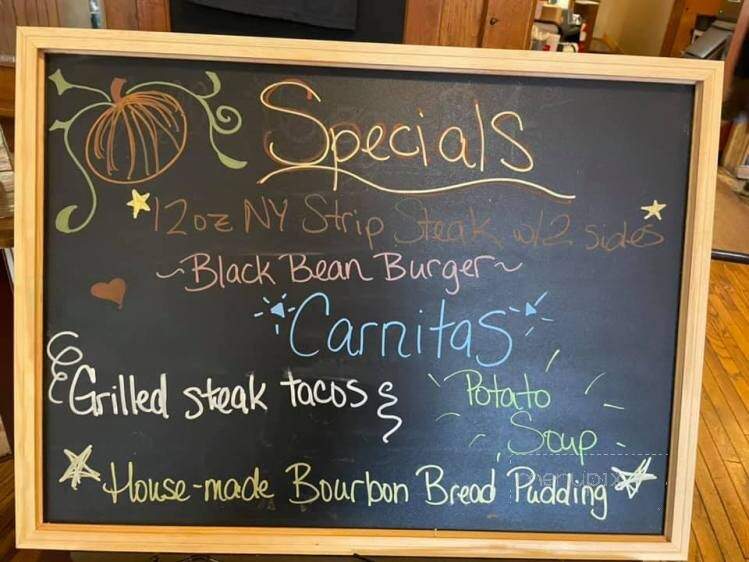 Specials
12oz NY Strip Steak w/2 sides
~Black Bean Burger~
Carnitas
Grilled steak tacos
Potato
Soup
House-made Bourbon Bread Pudding